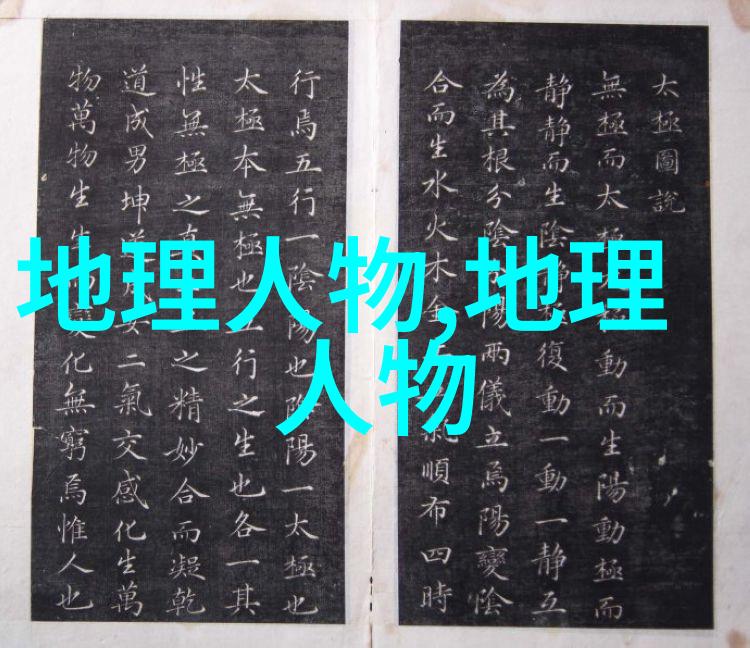 地理人物,地理
人物
太極圖說
無極而太極動而生陽動極而
静静而生陰静極復動一動一静互
為其根分陰陽兩儀立焉陽變陰
合而生水火木金氣順布四時
行焉五行一陰陽也陰陽一太極也
太極本無極也五行之生也各一其
性無極之真之精妙合而凝乾
道成男坤道成女二氣交感化生萬
物萬物生生而變化無窮焉惟人也